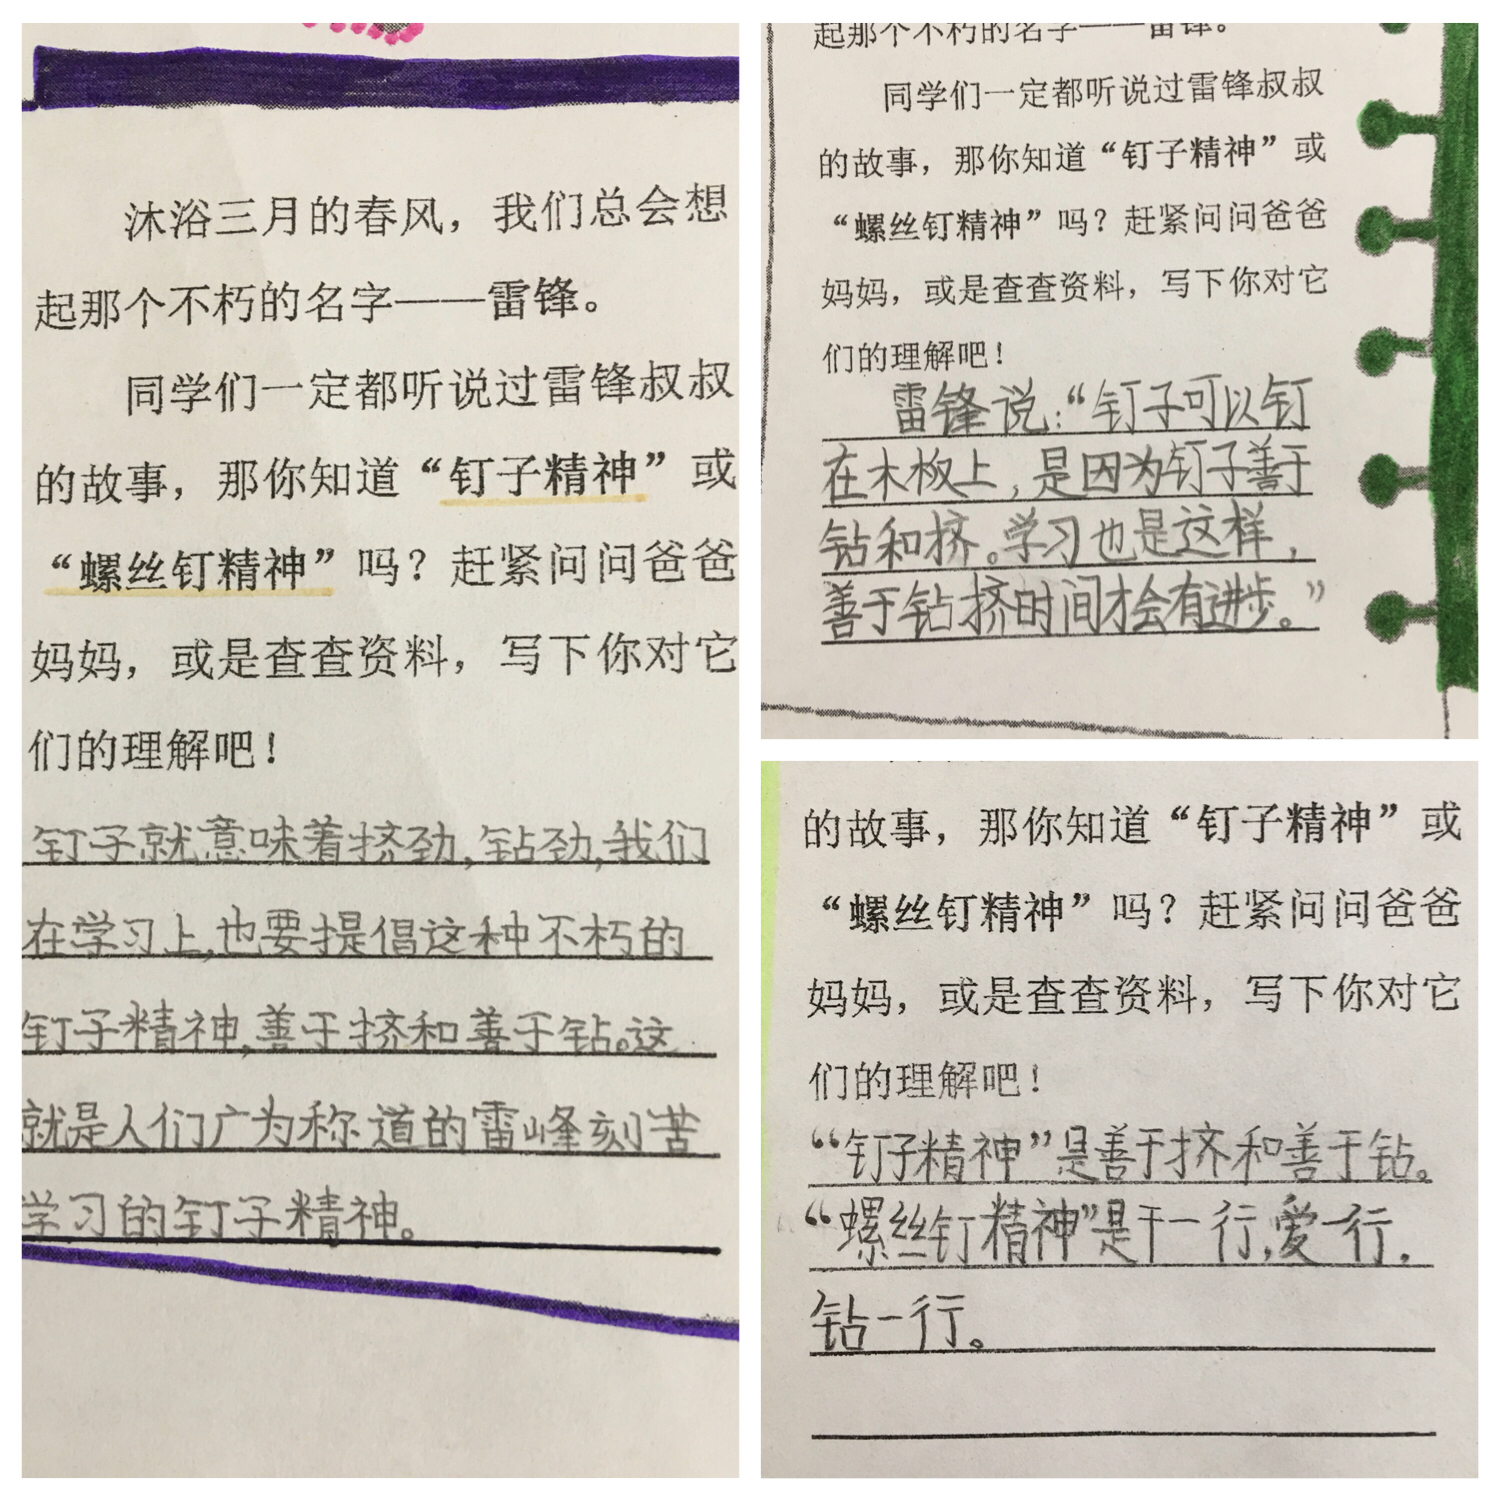 沐浴三月的春风，我们总会想
起那个不朽的名字——雷锋。
同学们一定都听说过雷锋叔叔
的故事，那你知道“钉子精神”或
“螺丝钉精神”吗？赶紧问问爸爸
妈妈，或是查查资料，写下你对它
们的理解吧！
钉子就意味着挤劲,钻劲,我们
在学习上,也要提倡这种不朽的
钉子精神,善于挤和善于钻。这
就是人们广为称道的雷峰刻苦
学习的钉子精神。
起那个不朽的名字——雷锋。
同学们一定都听说过雷锋叔叔
的故事，那你知道“钉子精神”或
“螺丝钉精神”吗？赶紧问问爸爸
妈妈，或是查查资料，写下你对它
们的理解吧！
雷锋说:“钉子可以钉
在木板上,是因为钉子善于
钻和挤。学习也是这样,
善于钻挤时间才会有进步。”
的故事，那你知道“钉子精神”或
“螺丝钉精神”吗？赶紧问问爸爸
妈妈，或是查查资料，写下你对它
们的理解吧！
“钉子精神”是善于挤和善于钻。
“螺丝钉精神”是干一行,爱一行,
钻一行。